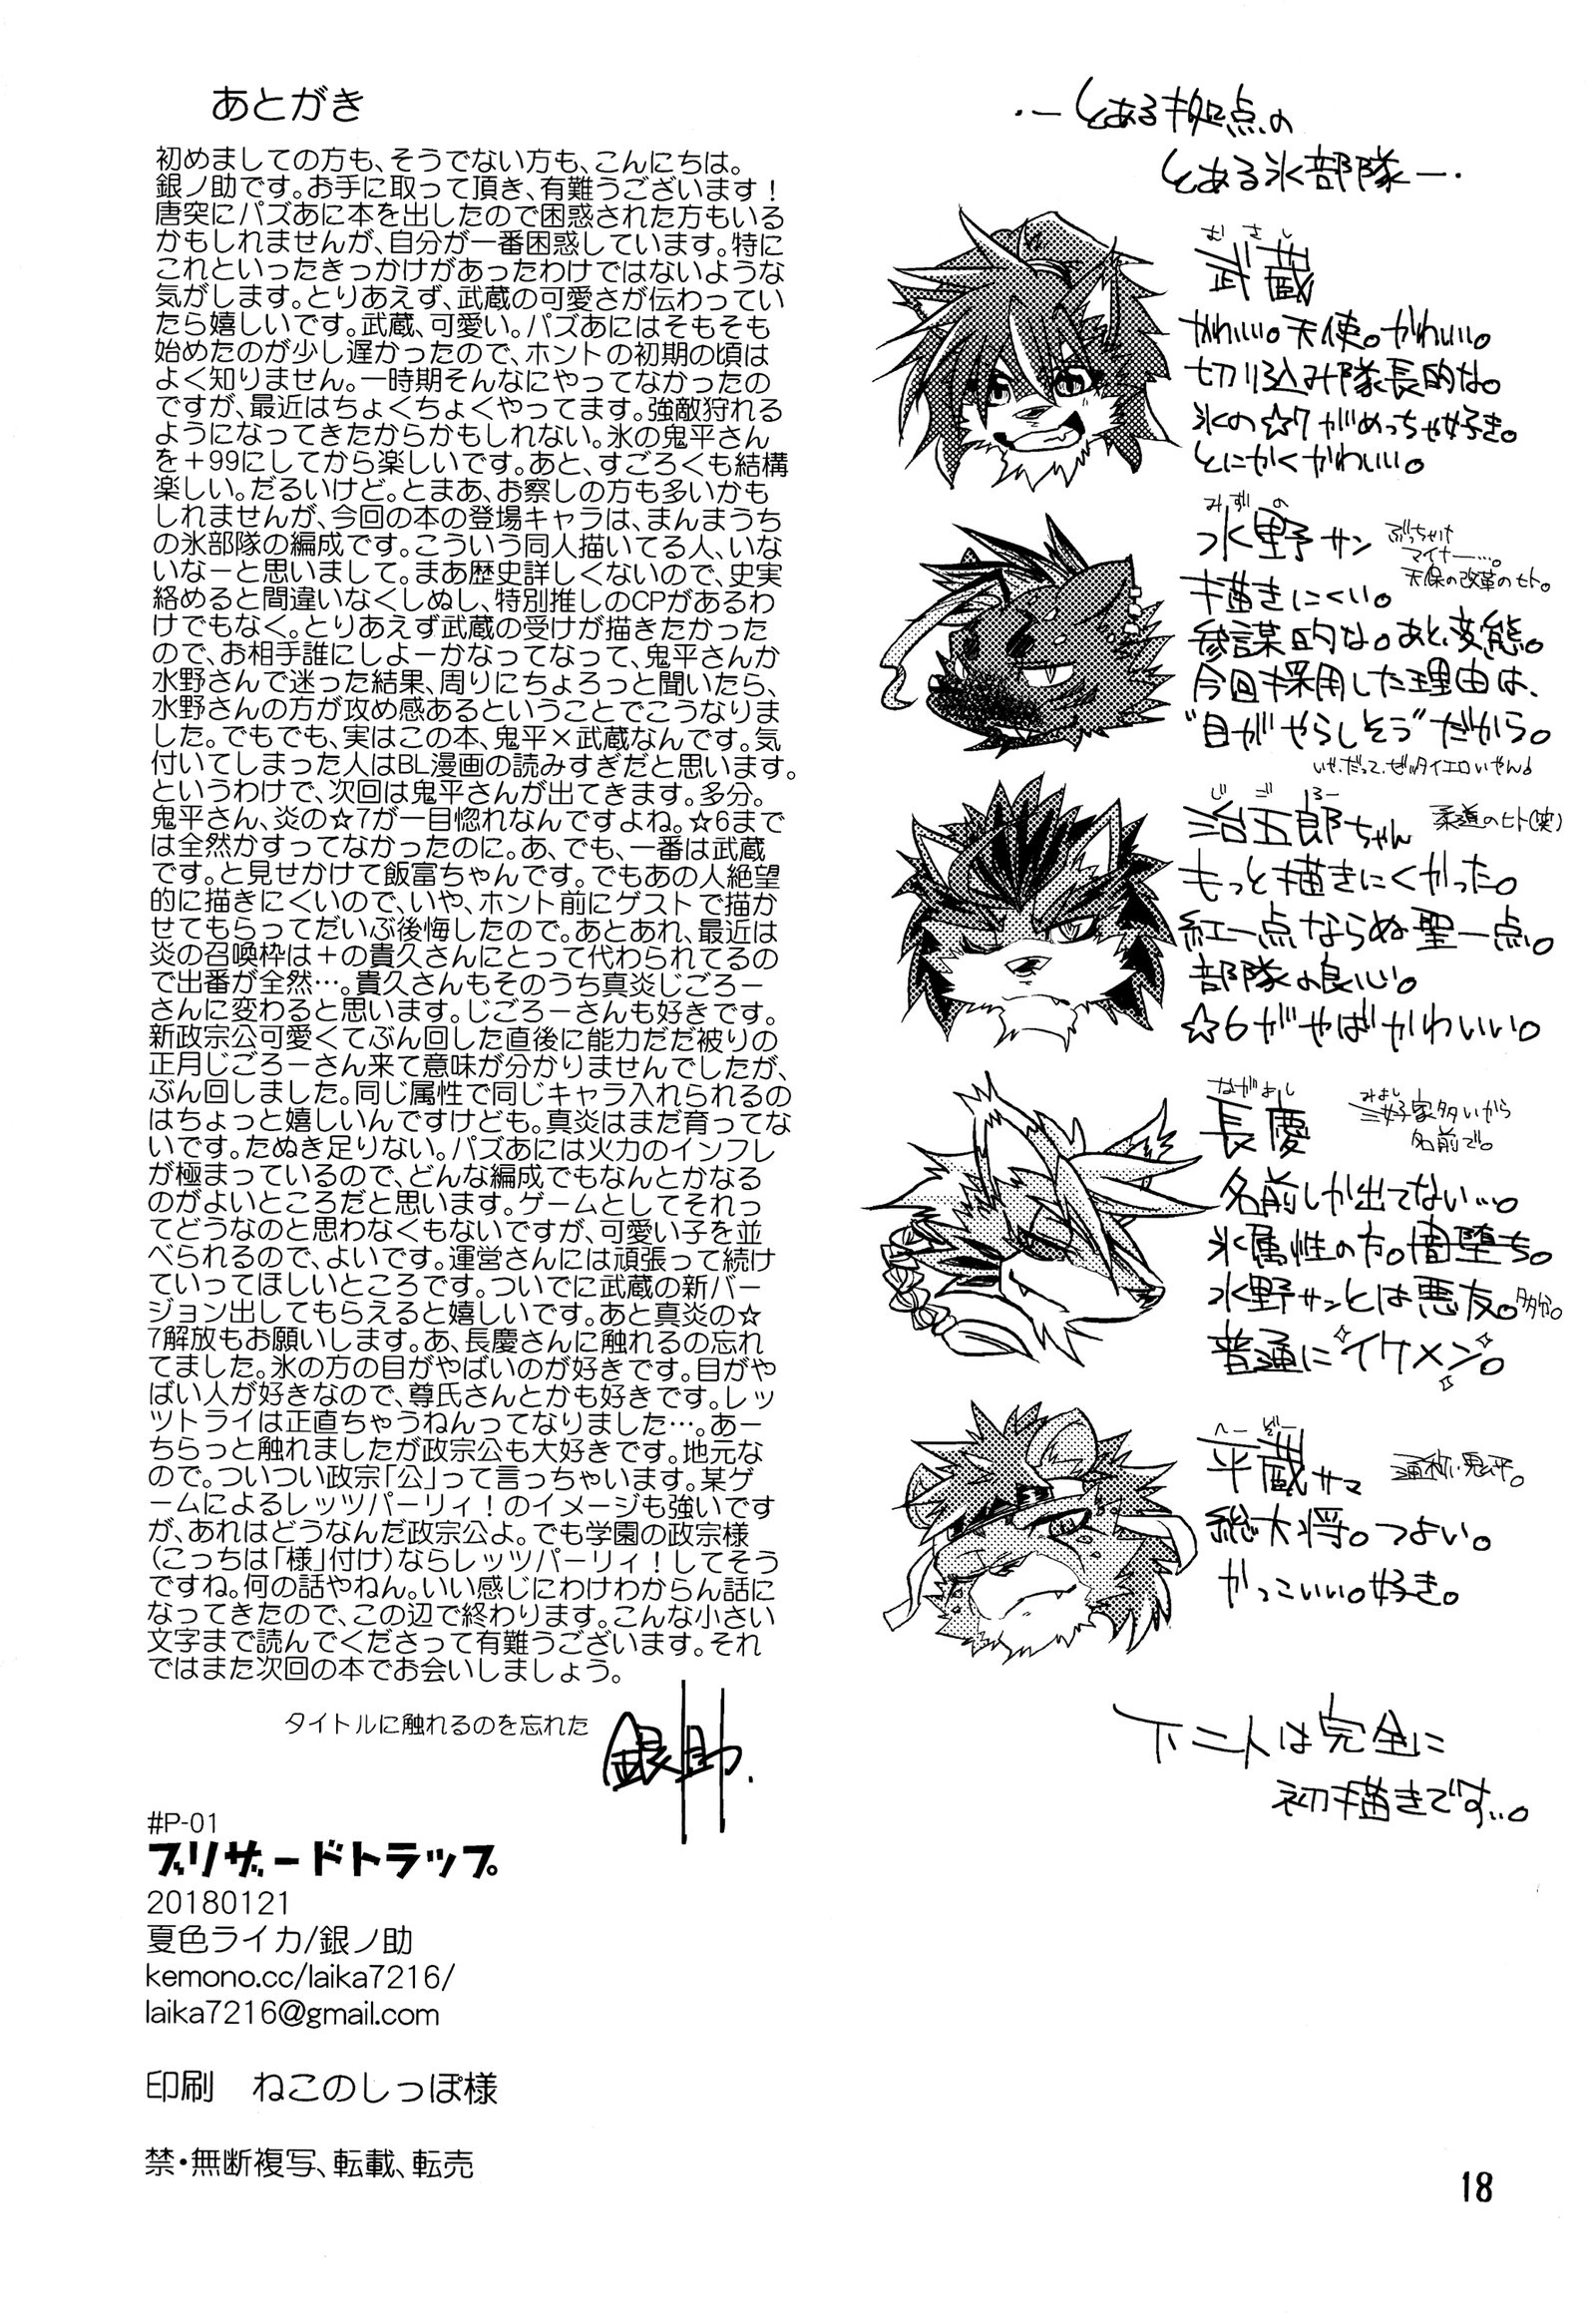 あとがき
初めましての方も、そうでない方も、こんにちは。
銀ノ助です。お手に取って頂き、有難うございます！
唐突にパズあに本を出したので困惑された方もいる
かもしれませんが、自分が一番困惑しています。特に
これといったきっかけがあったわけではないような
気がします。とりあえず、武蔵の可愛さが伝わってい
たら嬉しいです。武蔵、可愛い。パズあにはそもそも
始めたのが少し遅かったので、ホントの初期の頃は
よく知りません。一時期そんなにやってなかったの
ですが、最近はちょくちょくやってます。強敵狩れる
ようになってきたからかもしれない。氷の鬼平さん
を＋99にしてから楽しいです。あと、すごろくも結構
楽しい。だるいけど。とまあ、お察しの方も多いかも
しれませんが、今回の本の登場キャラは、まんまうち
の氷部隊の編成です。こういう同人描いてる人、いな
いなーと思いまして。まあ歴史詳しくないので、史実
絡めると間違いなくしぬし、特別推しのCPがあるわ
けでもなく。とりあえず武蔵の受けが描きたかった
ので、お相手誰にしよーかなってなって、鬼平さんか
水野さんで迷った結果、周りにちょろっと聞いたら、
水野さんの方が攻め感あるということでこうなりま
した。でもでも、実はこの本、鬼平×武蔵なんです。気
付いてしまった人はBL漫画の読みすぎだと思います。
というわけで、次回は鬼平さんが出てきます。多分。
鬼平さん、炎の☆7が一目惚れなんですよね。☆6まで
は全然かすってなかったのに。あ、でも、一番は武蔵
です。と見せかけて飯富ちゃんです。でもあの人絶望
的に描きにくいので、いや、ホント前にゲストで描か
せてもらってだいぶ後悔したので。あとあれ、最近は
炎の召喚枠は＋の貴久さんにとって代わられてるの
で出番が全然…。貴久さんもそのうち真炎じごろー
さんに変わると思います。じごろーさんも好きです。
新政宗公可愛くてぶん回した直後に能力だだ被りの
正月じごろーさん来て意味が分かりませんでしたが、
ぶん回しました。同じ属性で同じキャラ入れられるの
はちょっと嬉しいんですけども。真炎はまだ育ってな
いです。たぬき足りない。パズあには火力のインフレ
が極まっているので、どんな編成でもなんとかなる
のがよいところだと思います。ゲームとしてそれっ
てどうなのと思わなくもないですが、可愛い子を並
べられるので、よいです。運営さんには頑張って続け
ていってほしいところです。ついでに武蔵の新バー
ジョン出してもらえると嬉しいです。あと真炎の☆
7解放もお願いします。あ、長慶さんに触れるの忘れ
てました。氷の方の目がやばいのが好きです。目がや
ばい人が好きなので、尊氏さんとかも好きです。レッ
ツトライは正直ちゃうねんってなりました…。あー
ちらっと触れましたが政宗公も大好きです。地元な
ので。ついつい政宗「公」って言っちゃいます。某ゲ
ームによるレッツパーリィ！のイメージも強いです
が、あれはどうなんだ政宗公よ。でも学園の政宗様
（こっちは「様」付け）ならレッツパーリィ！してそう
ですね。何の話やねん。いい感じにわけわからん話に
なってきたので、この辺で終わります。こんな小さい
文字まで読んでくださって有難うございます。それ
ではまた次回の本でお会いしましょう。
タイトルに触れるのを忘れた
銀ノ助.
#P-01
ブリザードトラップ
20180121
夏色ライカ/銀ノ助
kemono.cc/laika7216/
laika7216@gmail.com
印刷　ねこのしっぽ様
禁・無断複写、転載、転売
・ーとある拠点の
とある氷部隊ー・
むさし
武蔵
かわいい。天使。かわいい。
切り込み隊長的な。
氷の☆7がめっちゃ好き。
とにかくかわいい。
みずの
水野サン
ぶっちゃけ
マイナー…。
天保の改革のヒト。
描きにくい。
参謀的な。あと、変態。
今回採用した理由は、
"目がやらしそう"だから。
いや、だって、ぜッタイエロいやん♪
じごろー
治五郎ちゃん
柔道のヒト(笑)
もっと描きにくかった。
紅一点ならぬ聖一点。
部隊の良心。
☆6がやばかわいい。
ながよし
長慶
みよし
三好家多いから
名前で。
名前しか出てない…。
氷属性の方。闇堕ち。
水野サンとは悪友。多分。
普通にイケメン。
へーぞー
平蔵サマ
通称、鬼平。
総大将。つよい。
かっこいい。好き。
下二人は完全に
初描きです…。
18